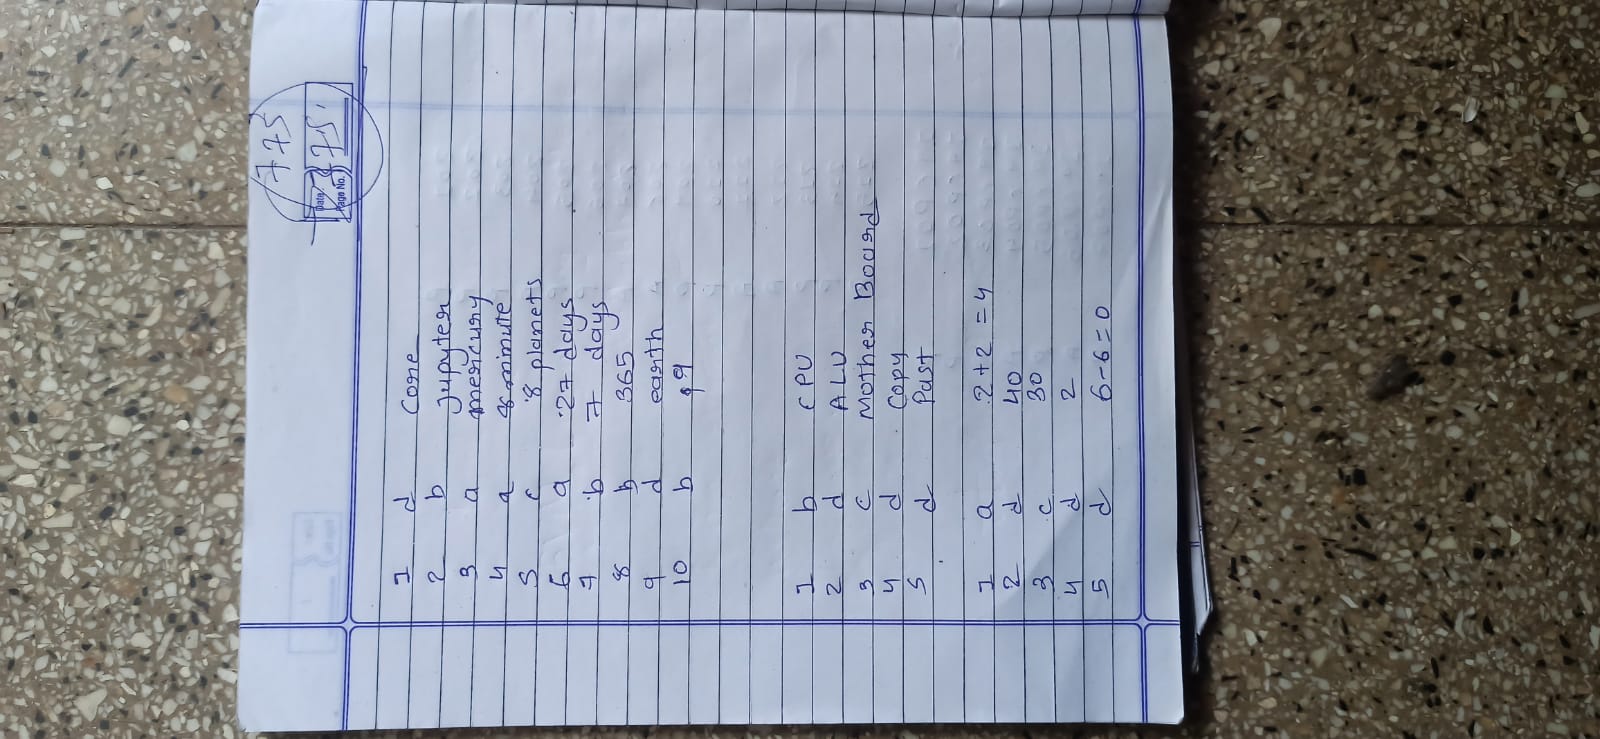 775
Date
Page No.
75
1 d Core
2 b Jupyter
3 a mercury
4 a 8 minute
5 c 8 planets
6 a 27 days
7 b 7 days
8 b 365
9 d earth
10 b 99
1 b CPU
2 d ALU
3 c Mother Bourd
4 d Copy
5 d Past
1 a 2+2=4
2 d 40
3 c 30
4 d 2
5 d 6-6=0